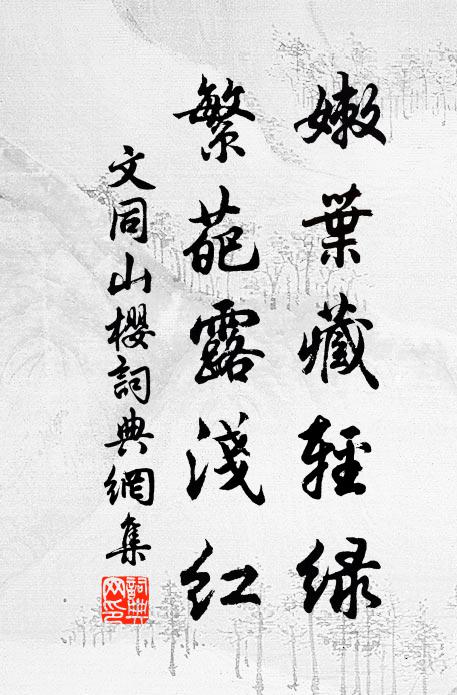 嫩葉藏輕綠
繁葩露淺紅
文同山櫻詞典網集